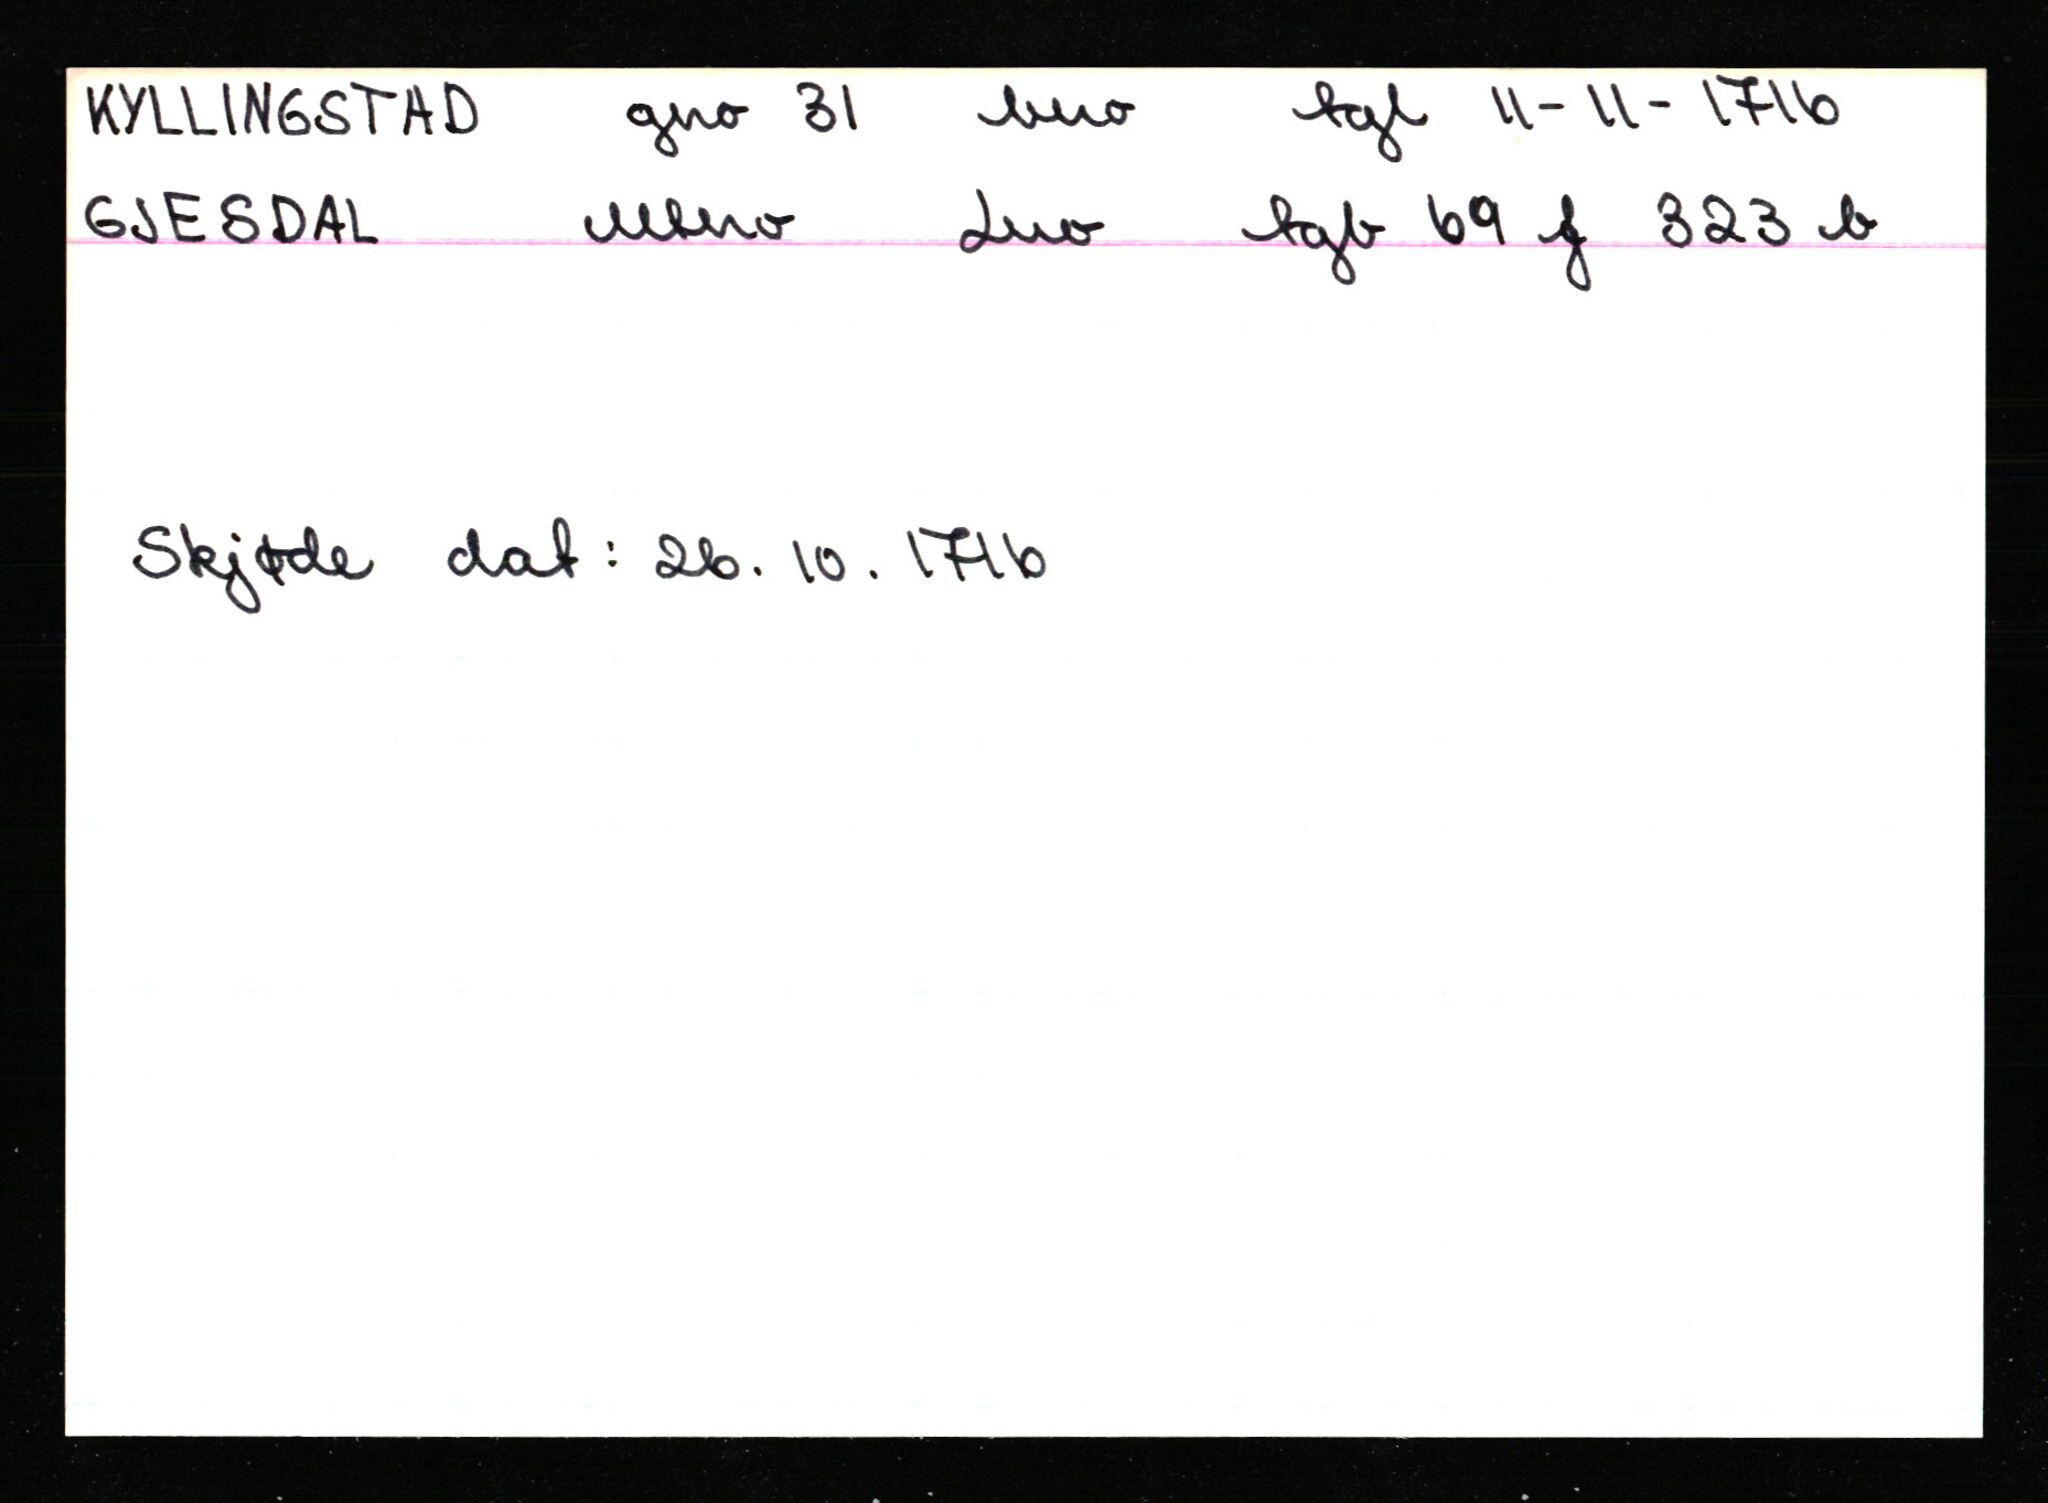 KYLLINGSTAD gno 31 bno tgl 11-11-1716
GJESDAL Mtno Lno tgb 69 f 323 b
Skjøde dat: 26.10.1716